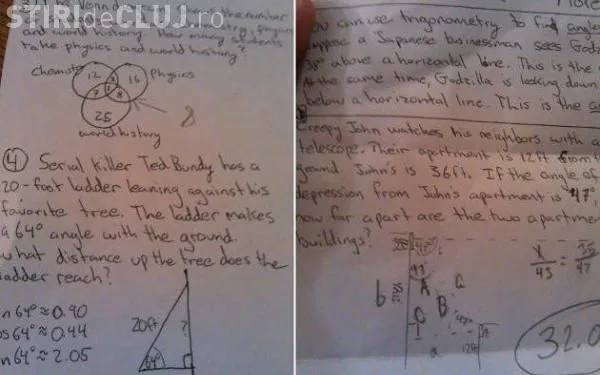 STIRIdeCLUJ.ro
the number
physics
and world history. How many
take physics and world history?
chemistry
Physics
12
16
7
8
25
8
world history
4 Serial killer Ted Bundy has a
20-foot ladder leaning against his
favorite tree. The ladder makes
a 64° angle with the ground.
what distance up the tree does the
ladder reach?
64° ≈ 0.90
cos 64° ≈ 0.44
64° ≈ 2.05
20ft
?
64°
you can use trigonometry to find angles
suppose a Japanese businessman sees Godz
above a horizontal line. This is the
At the same time, Godzilla is looking down
below a horizontal line. This is the
Creepy John watches his neighbors with a
telescope. Their apartment is 12ft from
ground. John's is 36ft. If the angle of
depression from John's apartment is 47°,
how far apart are the two apartment
buildings?
43
A
a
b
C
B
a
12ft
43
47
32.0